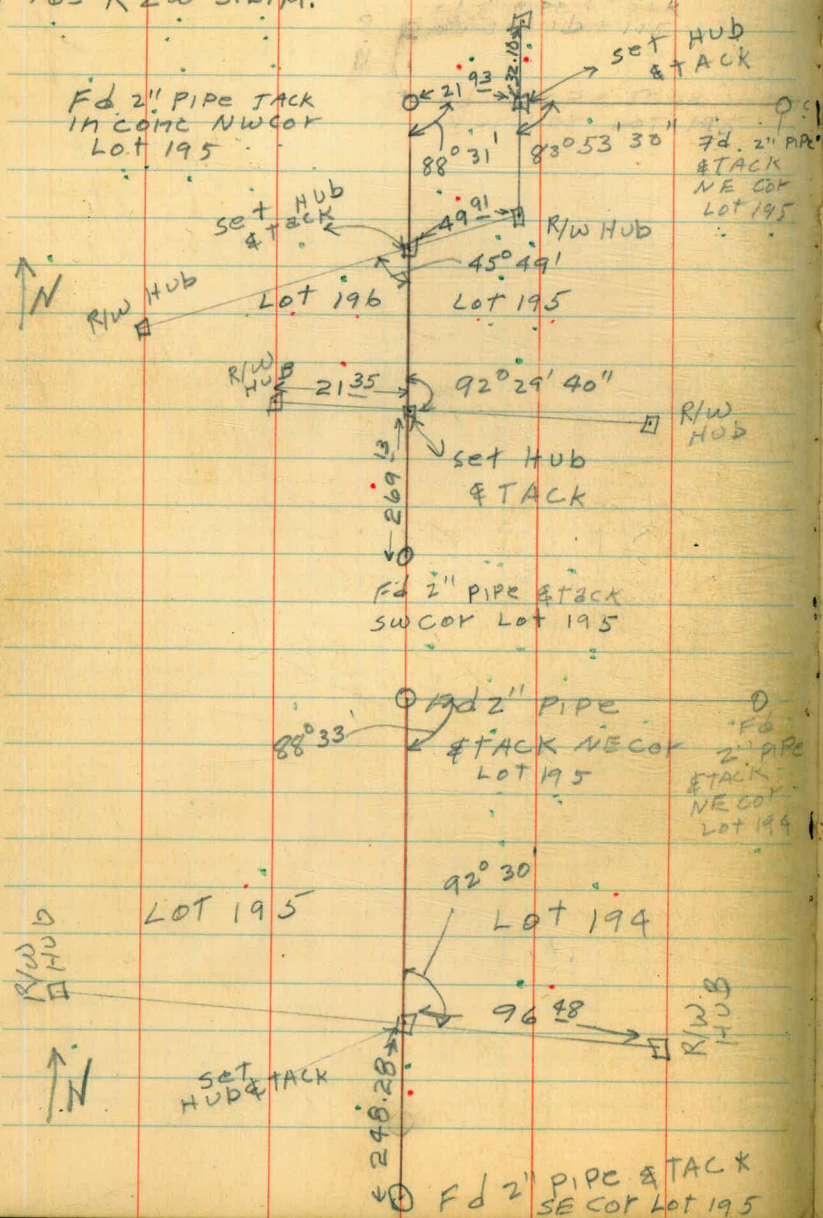 R2W S.B.M.
32.10
set HUB
& TACK
Fd 2" PIPE TACK
in conc NW Cor
Lot 195
21 93
88° 31'
83° 53' 30"
Fd. 2" PIPE
& TACK
NE Cor
Lot 195
set HUB
& tack
49 91
R/W HUB
45° 49'
N
R/W HUB
Lot 196
Lot 195
R/W
HUB
21 35
92° 29' 40"
R/W
HUB
set HUB
& TACK
269 13
Fd 2" PIPE & tack
SW Cor Lot 195
Fd 2" PIPE
& TACK NE Cor
LOT 195
88° 33'
Fd
2" PIPE
& TACK
NE COR
Lot 194
92° 30'
LOT 195
LOT 194
R/W
HUB
96 48
R/W
HUB
N
set
HUB & TACK
248.28
Fd 2" PIPE & TACK
SE Cor Lot 195